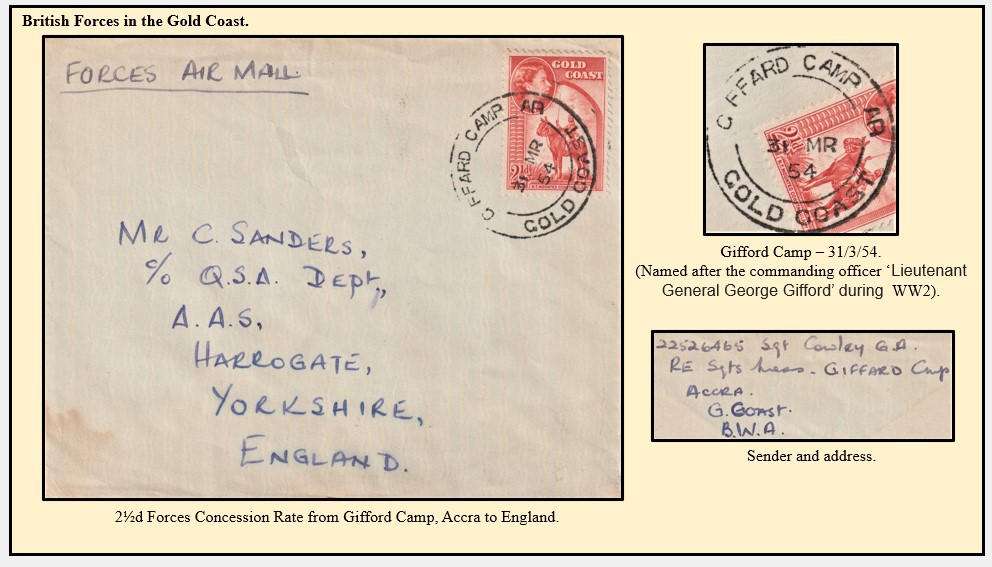 British Forces in the Gold Coast.
FORCES AIR MAIL
GOLD
COAST
2½d
GIFFARD CAMP AR
31 MR
54
GOLD COAST
MR C. SANDERS,
c/o Q.S.A. Dept,,
A.A.S,
HARROGATE,
YORKSHIRE,
ENGLAND.
2½d Forces Concession Rate from Gifford Camp, Accra to England.
GIFFARD CAMP AR
2½d
31 MR
54
GOLD COAST
Gifford Camp – 31/3/54.
(Named after the commanding officer ‘Lieutenant
General George Gifford’ during WW2).
22526465 Sgt Cowley G.A.
RE Sgts Mess - GIFFARD Cmp
ACCRA.
G. COAST.
B.W.A.
Sender and address.